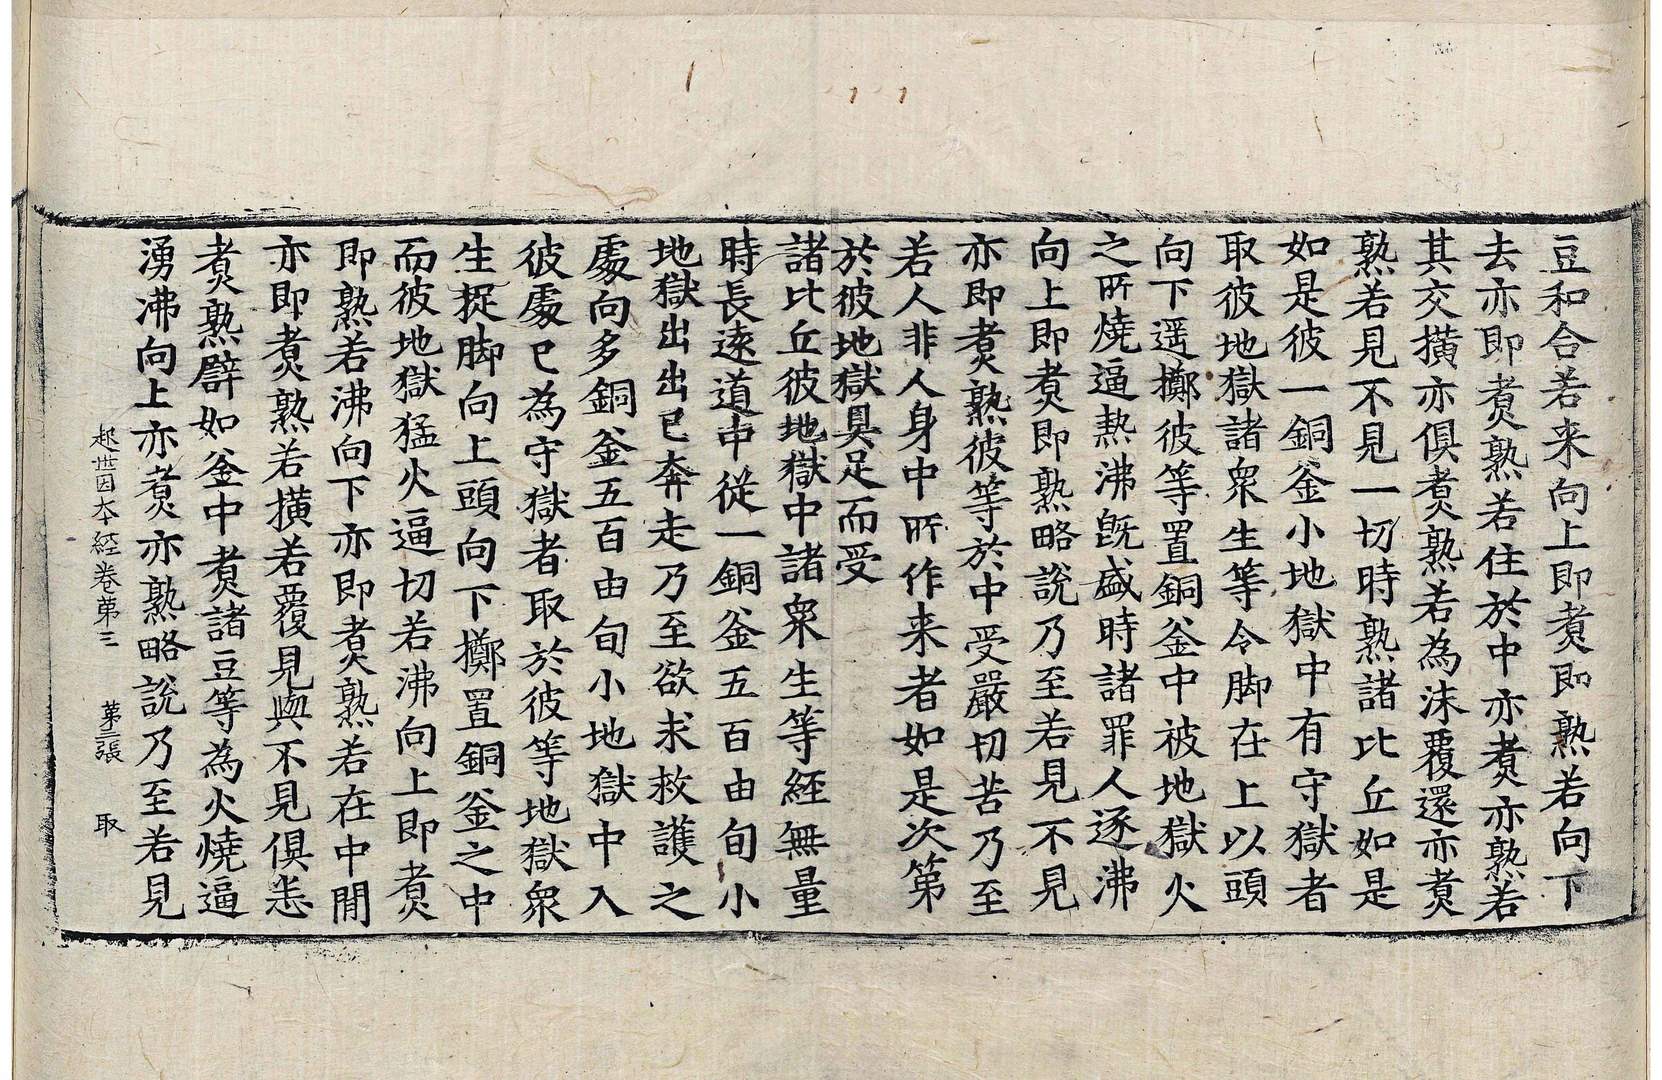 豆和合若来向上即煮即熟若向下
去亦即煮熟若住於中亦煮亦熟若
其交撗亦俱煮熟若為沫覆還亦煮
熟若見不見一切時熟諸比丘如是
如是彼一銅釜小地獄中有守獄者
取彼地獄諸衆生等令脚在上以頭
向下遥擲彼等置銅釜中被地獄火
之所燒逼熱沸旣盛時諸罪人逐沸
向上即煮即熟略說乃至若見不見
亦即煮熟彼等於中受嚴切苦乃至
若人非人身中所作来者如是次第
於彼地獄具足而受
諸比丘彼地獄中諸衆生等經無量
時長遠道中從一銅釜五百由旬小
地獄出出已奔走乃至欲求救護之
處向多銅釜五百由旬小地獄中入
彼處已為守獄者取於彼等地獄衆
生捉脚向上頭向下擲置銅釜之中
而彼地獄猛火逼切若沸向上即煮
即熟若沸向下亦即煮熟若在中閒
亦即煮熟若撗若覆見與不見俱恚
煮熟譬如釜中煮諸豆等為火燒逼
湧沸向上亦煮亦熟略說乃至若見
起世因本經卷第三 第三張 取